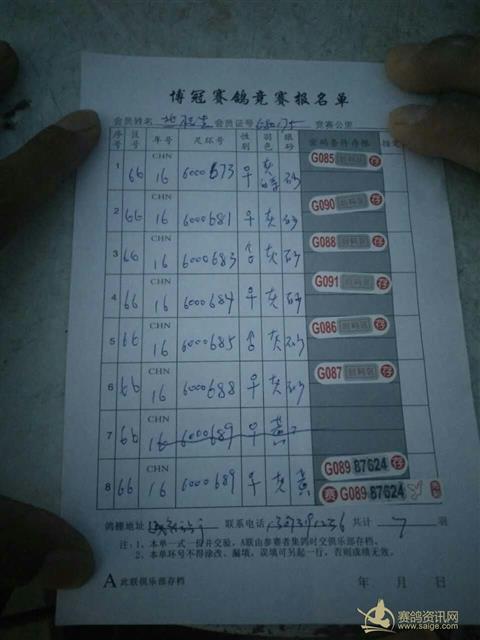 博冠赛鸽竞赛报名单
会员姓名 会员证号 竞赛公里
序号 注号 年号 足环号 性别 羽色 眼砂 密码条件存根 指定
1 66 CHN 16 6000673 ♀ 灰 砂 G085 刮码区 存
2 66 CHN 16 6000681 ♀ 灰 砂 G090 刮码区 存
3 66 CHN 16 6000683 ♂ 灰 砂 G088 刮码区 存
4 66 CHN 16 6000684 ♀ 灰 砂 G091 刮码区 存
5 66 CHN 16 6000685 ♂ 灰 砂 G086 刮码区 存
6 66 CHN 16 6000688 ♀ 灰 砂 G087 刮码区 存
7 66 CHN 16 6000689 ♀ 黄
8 66 CHN 16 6000689 ♀ 灰 黄 G089 87624 存
赛 G089 87624
鸽棚地址 联系电话 共计 7 羽
注:1、本单一式一份并交验,A联由参赛者集鸽时交俱乐部存档。
2、本单环号不得涂改、漏填,误填可另起一行,否则成绩无效。
A 此联俱乐部存档 年 月 日
赛鸽资讯网
www.saige.com